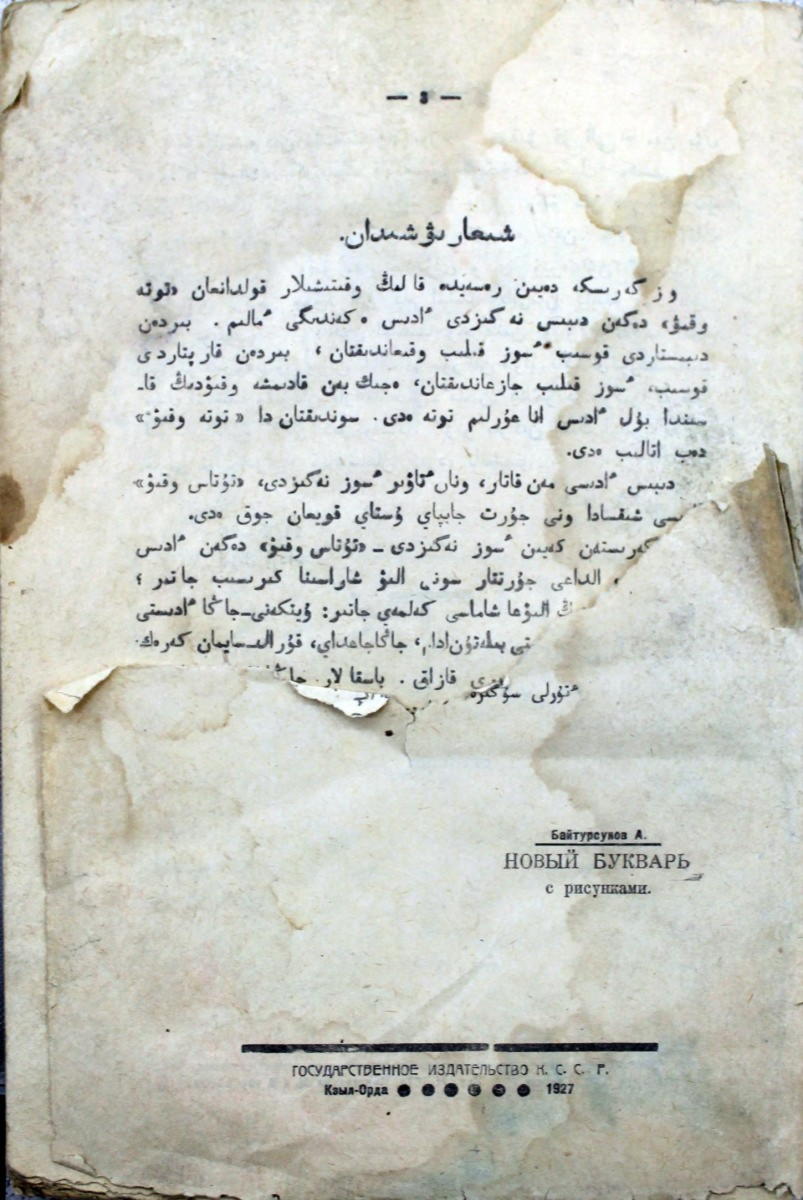 — 3 —
شىعارىۋشىدان.
وز گەرىسكە دەيىن رەسەيدە قالىڭ وقىتىشىلار قولدانعان «توتە
وقىۋ» دەگەن دىبىس نەگىزدى ٴادىس ەكەندىگى ٴمالىم. بىردەن
دىبىستاردى قوسىپ ٴسوز قىلىپ وقىعاندىقتان، بىردەن قارىپتاردى
قوسىپ، ٴسوز قىلىپ جازعاندىقتان، ەجىك بەن قادىمشە وقىۋدىڭ قا-
سىندا بۇل ٴادىس انا عۇرلىم توتە ەدى. سوندىقتان دا «توتە وقىۋ»
دەپ اتالىپ ەدى.
دىبىس ٴادىسى مەن قاتار، ونان ٴتاۋىر ٴسوز نەگىزدى، «تۇتاس وقىۋ»
شىقسادا ونى جۇرت جاپپاي ۇستاي قويعان جوق ەدى.
كەرىستەن كەيىن ٴسوز نەگىزدى — «تۇتاس وقىۋ» دەگەن ٴادىس
الداعى جۇرتتار سونى الىۋ شاراسىنا كىرىسىپ جاتىر؛
الىۋعا شاماسى كەلمەي جاتىر: ۇيتكەنى — جاڭا ٴادىستى
جاڭاجاعداي، قۇرال-سايمان كەرەك.
قازاق. باسقالار
ٴتۇرلى
Байтурсунов А.
НОВЫЙ БУКВАРЬ
с рисунками.
ГОСУДАРСТВЕННОЕ ИЗДАТЕЛЬСТВО К. С. С. Р.
Кзыл-Орда 1927